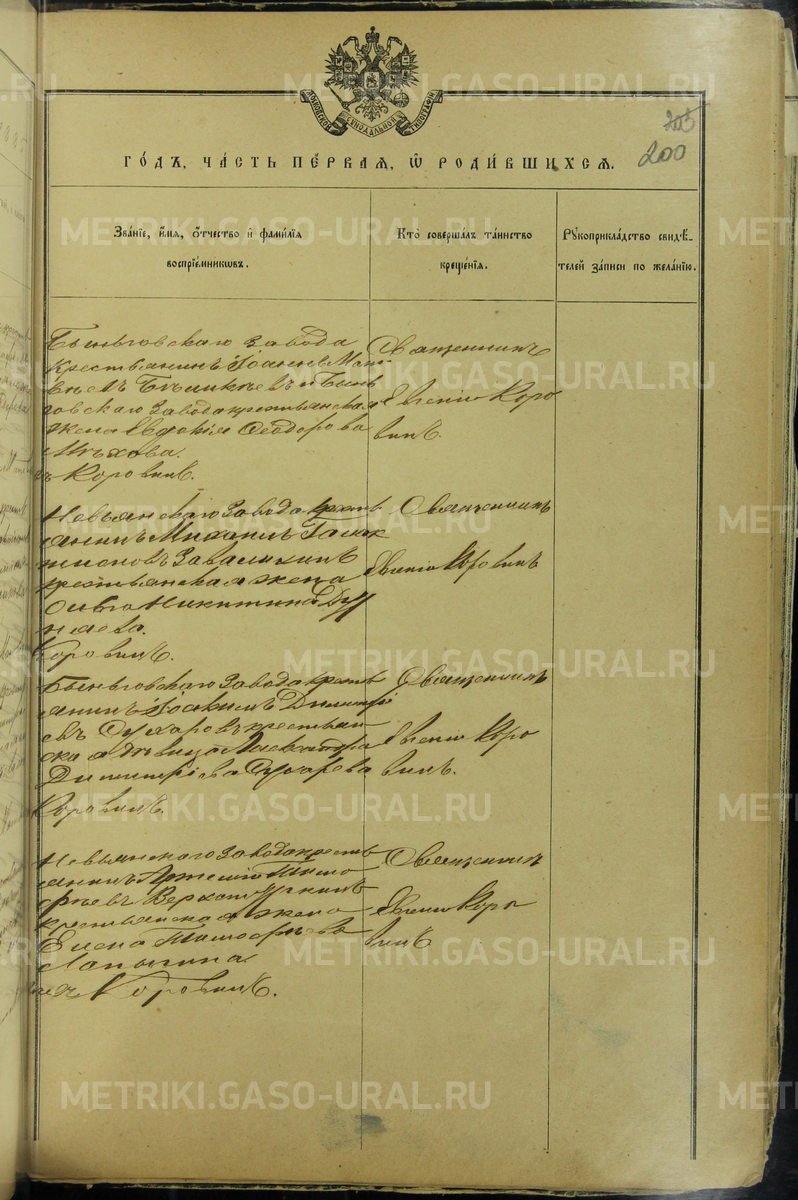 МОСКОВСКОЙ СѴНОДАЛЬНОЙ ТИПОГРАФІИ
203
200
ГО́ДЪ, ЧА́СТЬ ПЕ́РВАЯ, Ѡ РОДИ́ВШИХСЯ.
Зва́ніе, и́мя, о́тчество и фами́лія
воспріе́мниковъ.
Кто̀ соверша́лъ та́инство
креще́нія.
Рꙋкоприкла́дство свидѣ́-
телей за́писи по жела́нію.
Быньговскаго завода
крестьянинъ Іоаннъ Мат-
вѣевъ и Бынь
говскаго завода крестьянская
жена Евдокія Ѳеодорова
Мѣхова.
Коровинъ.
Священникъ
Евгеній Коро
винъ.
Невьянскаго завода крестьь
янинъ Михаилъ Галак
тіоновъ Завалихинъ
крестьянская жена
Ольга Никитина
Коровинъ.
Священникъ
Евгеній Коровинъ
Быньговскаго завода кресть
янинъ Іоакимъ Димитрі
евъ Сухаревъ крестьян
ская дѣвица
Димитріева Сухарева
Коровинъ.
Священникъ
Евгеній Коро
винъ.
Невьянскаго завода кресть
янинъ Тимо
ѳеевъ
крестьянская жена
Елена Тимоѳеева
Лапшина
Коровинъ.
Священникъ
Евгеній Коро
винъ
METRIKI.GASO-URAL.RU